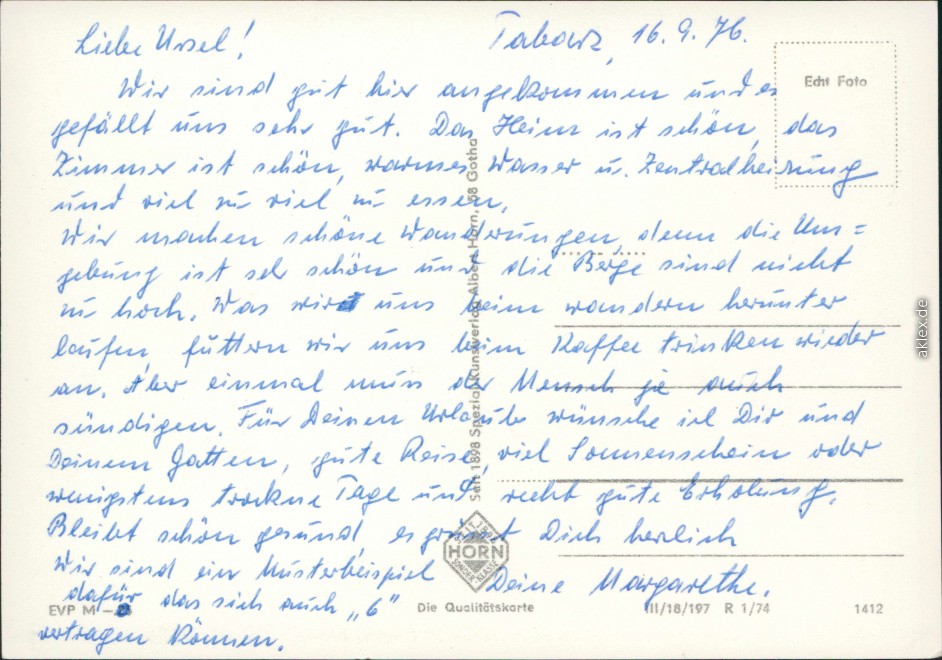 Liebe Ursel!
Tabarz, 16.9.76.
Echt Foto
Wir sind gut hier angekommen und es
gefällt uns sehr gut. Das Heim ist schön, das
Zimmer ist schön, warmes Wasser u. Zentralheizung
und viel zu viel zu essen.
Wir machen schöne Wanderungen, denn die Um=
gebung ist seh schön und die Berge sind nicht
zu hoch. Was wir uns beim wandern herunter
laufen, futtern wir uns beim Kaffee trinken wieder
an. Aber einmal muss der Mensch ja auch
sündigen. Für Deinen Urlaub wünsche ich Dir und
Deinem Gatten, gute Reise, viel Sonnenschein oder
wenigstens trockne Tage und recht gute Erholung.
Bleibt schön gesund, es grüsst Dich herzlich
Deine Margarethe.
Wir sind ein Musterbeispiel
dafür das sich auch „6"
vertragen können.
Seit 1898 Spezial-Kunstverlag Albert Horn, 58 Gotha
SEIT 1898
HORN
SONDER KLASSE
EVP M
Die Qualitätskarte
III/18/197 R 1/74
1412
aklex.de